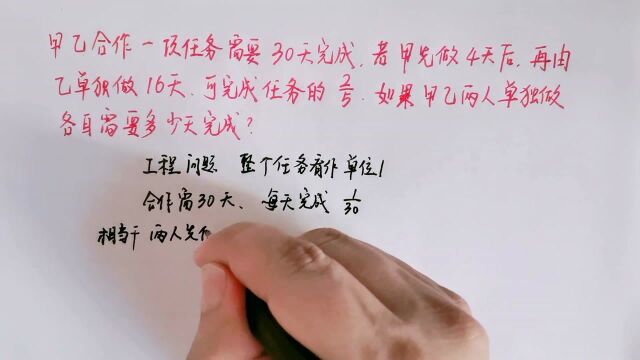 甲乙合作一项任务需要30天完成,若甲先做4天后,再由
乙单独做16天.可完成任务的2/5.如果甲乙两人单独做
各自需要多少天完成?
工程问题 整个任务看作单位1
合作需30天、每天完成1/30
相当于两人先